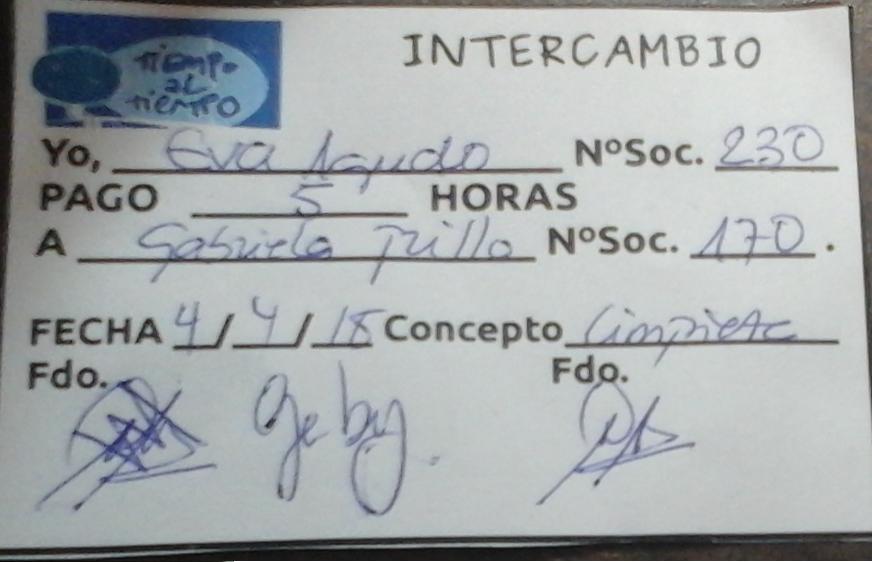 TIEMPO
AL
TIEMPO
INTERCAMBIO
Yo, Eva Agudo NºSoc. 230
PAGO 5 HORAS
A Gabriela Trillo NºSoc. 170.
FECHA 4/4/18 Concepto Limpieza
Fdo. Fdo.
Gaby.